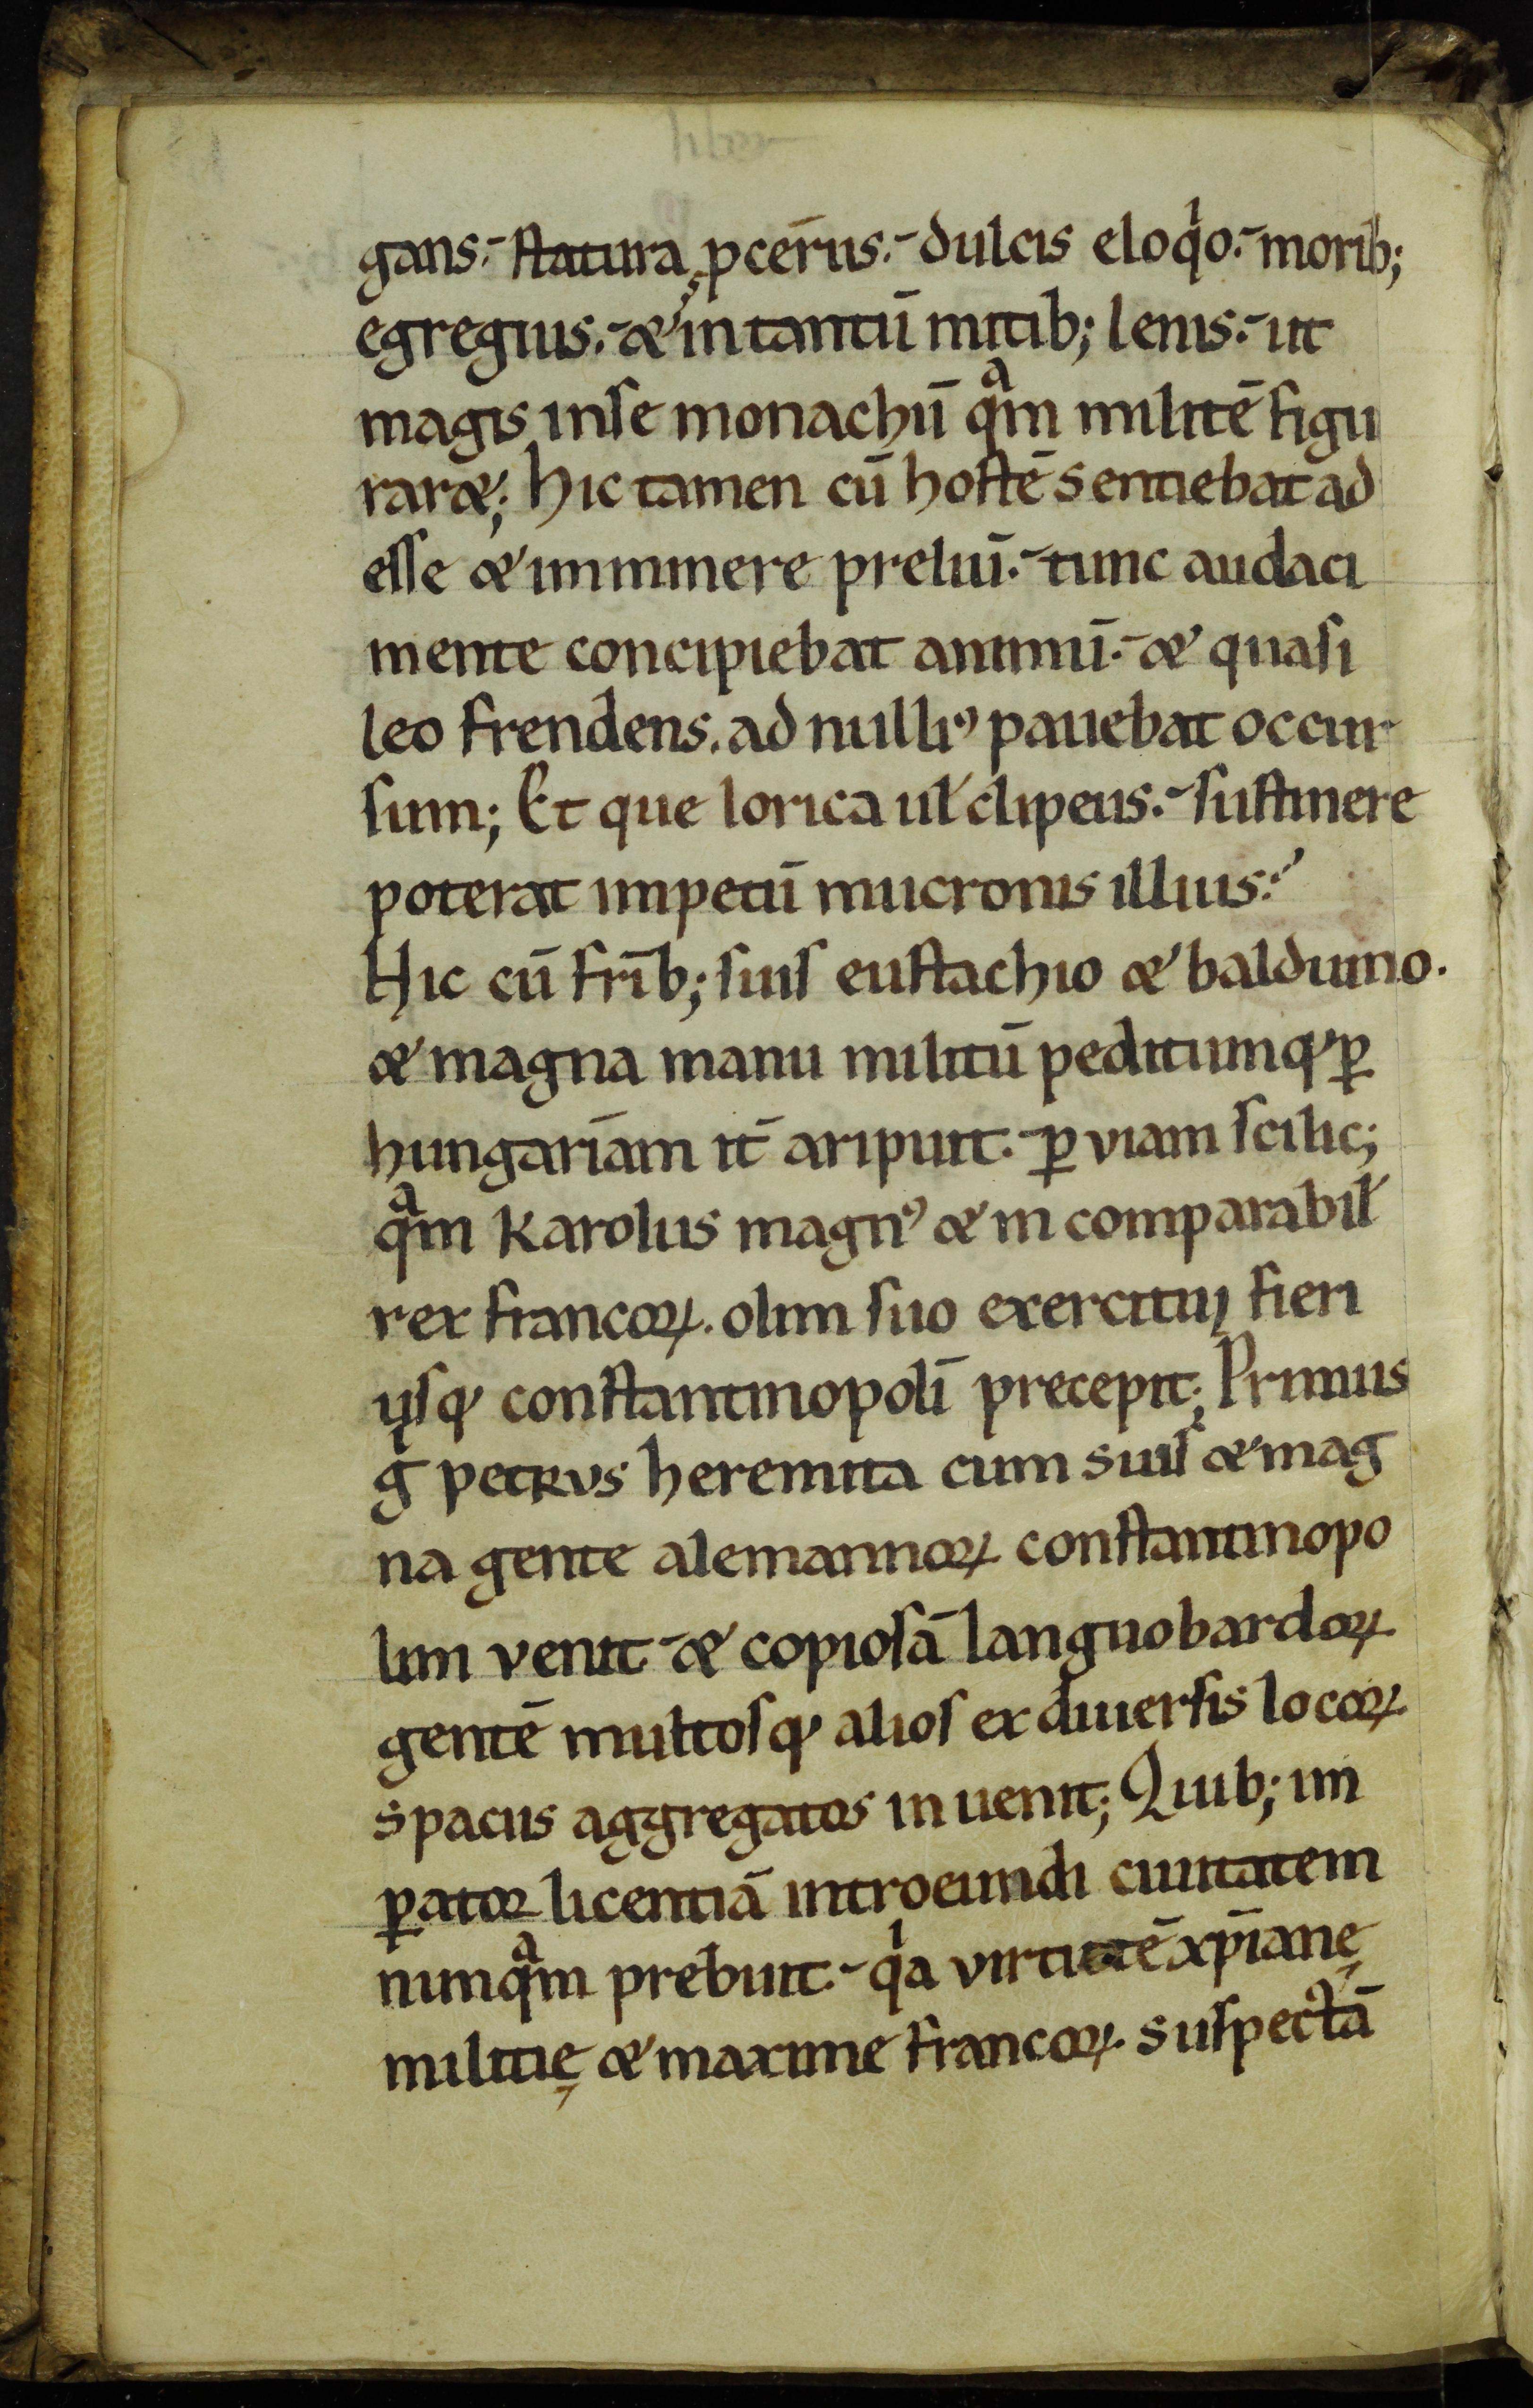 gans.- statura ꝓcerus.- dulcis eloqͥo.- morib;
egregius.- & in tantū mitib; lenis.- ut
magis inse monachū qᵃm militē figu
rar&; hic tamen cū hostē sentiebat ad
esse & imminere preliū.- tunc audaci
mente concipiebat animū.- & quasi
leo frendens. ad nulliꝰ pauebat occur
sum; Et que lorica uł clipeus.- sustinere
poterat impetū mucronis illius?
Hic cū fr̄ib; suis eustachio & balduino.
& magna manu militū peditumqꝫ ꝑ
hungariam it̄ aripuit.- ꝑ viam scilic;
qᵃm karolus magnꝰ & in comparabił
rex francoꝝ. olim suo exercitui fieri
usqꝫ constantinopolī precepit; Primus
gͥ petrvs heremita cum suis & mag
na gente alemannoꝝ constantinopo
lim venit.- & copiosā languobardoꝝ
gentē multosqꝫ alios ex diuersis locoꝝ
spaciis aggregatos in uenit; Quib; im
ꝑator licentiā introeundi ciuitatem
nunqᵃm prebuit.- qͥa virtutē xp̄ianę
militię & maxime francoꝝ. suspectā